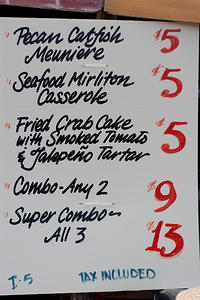 Pecan Catfish $5
Meunière
Seafood Mirliton $5
Casserole
Fried Crab Cake $5
with Smoked Tomato
& Jalapeño Tartar
Combo-Any 2 $9
Super Combo- $13
All 3
I-5 TAX INCLUDED